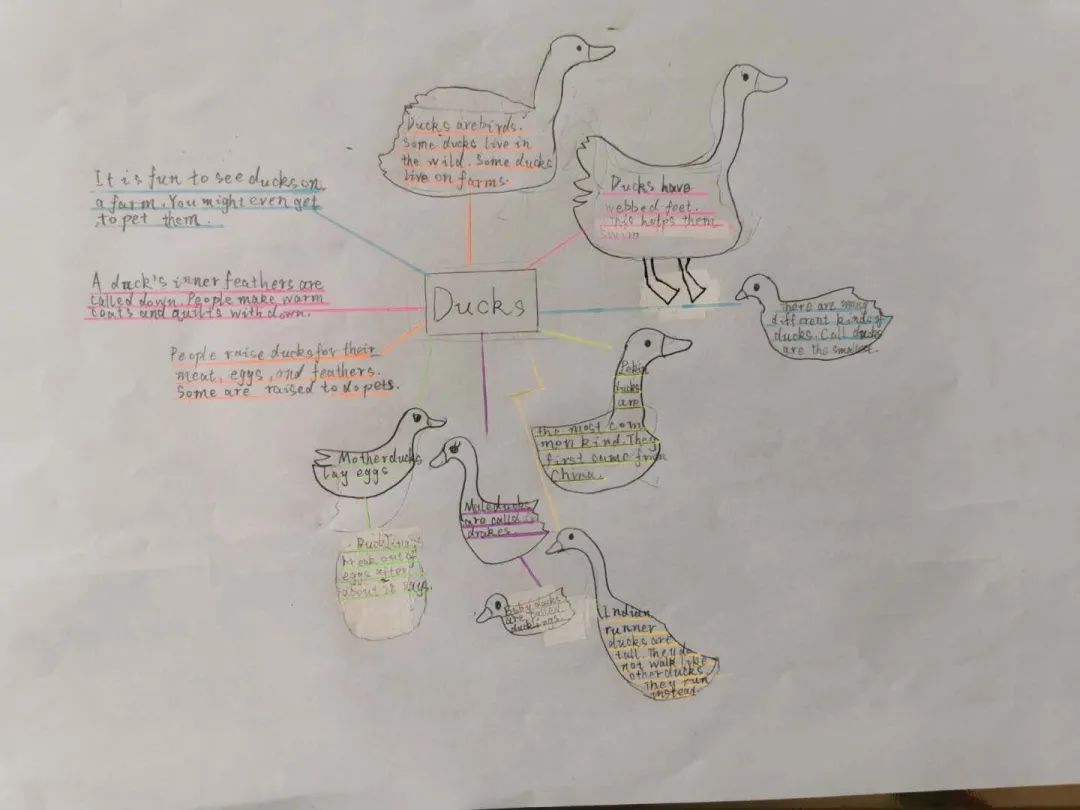 Ducks are birds.
Some ducks live in
the wild. Some ducks
live on farms.
Ducks have
webbed feet.
This helps them
swim
It is fun to see ducks on
a farm. You might even get
to pet them.
A duck's inner feathers are
called down. People make warm
coats and quilts with down.
People raise ducks for their
meat, eggs, and feathers.
Some are raised to do pets.
Ducks
There are many
different kinds of
ducks. Call ducks
are the smallest.
Pekin
ducks
are
the most com
mon kind. They
first came from
China.
Mother ducks
lay eggs
Ducklings
break out of
eggs after
about 28 days.
Male ducks
are called
drakes.
Baby ducks
are called
ducklings.
Indian
runner
ducks are
tall. They do
not walk like
other ducks
They run
instead.